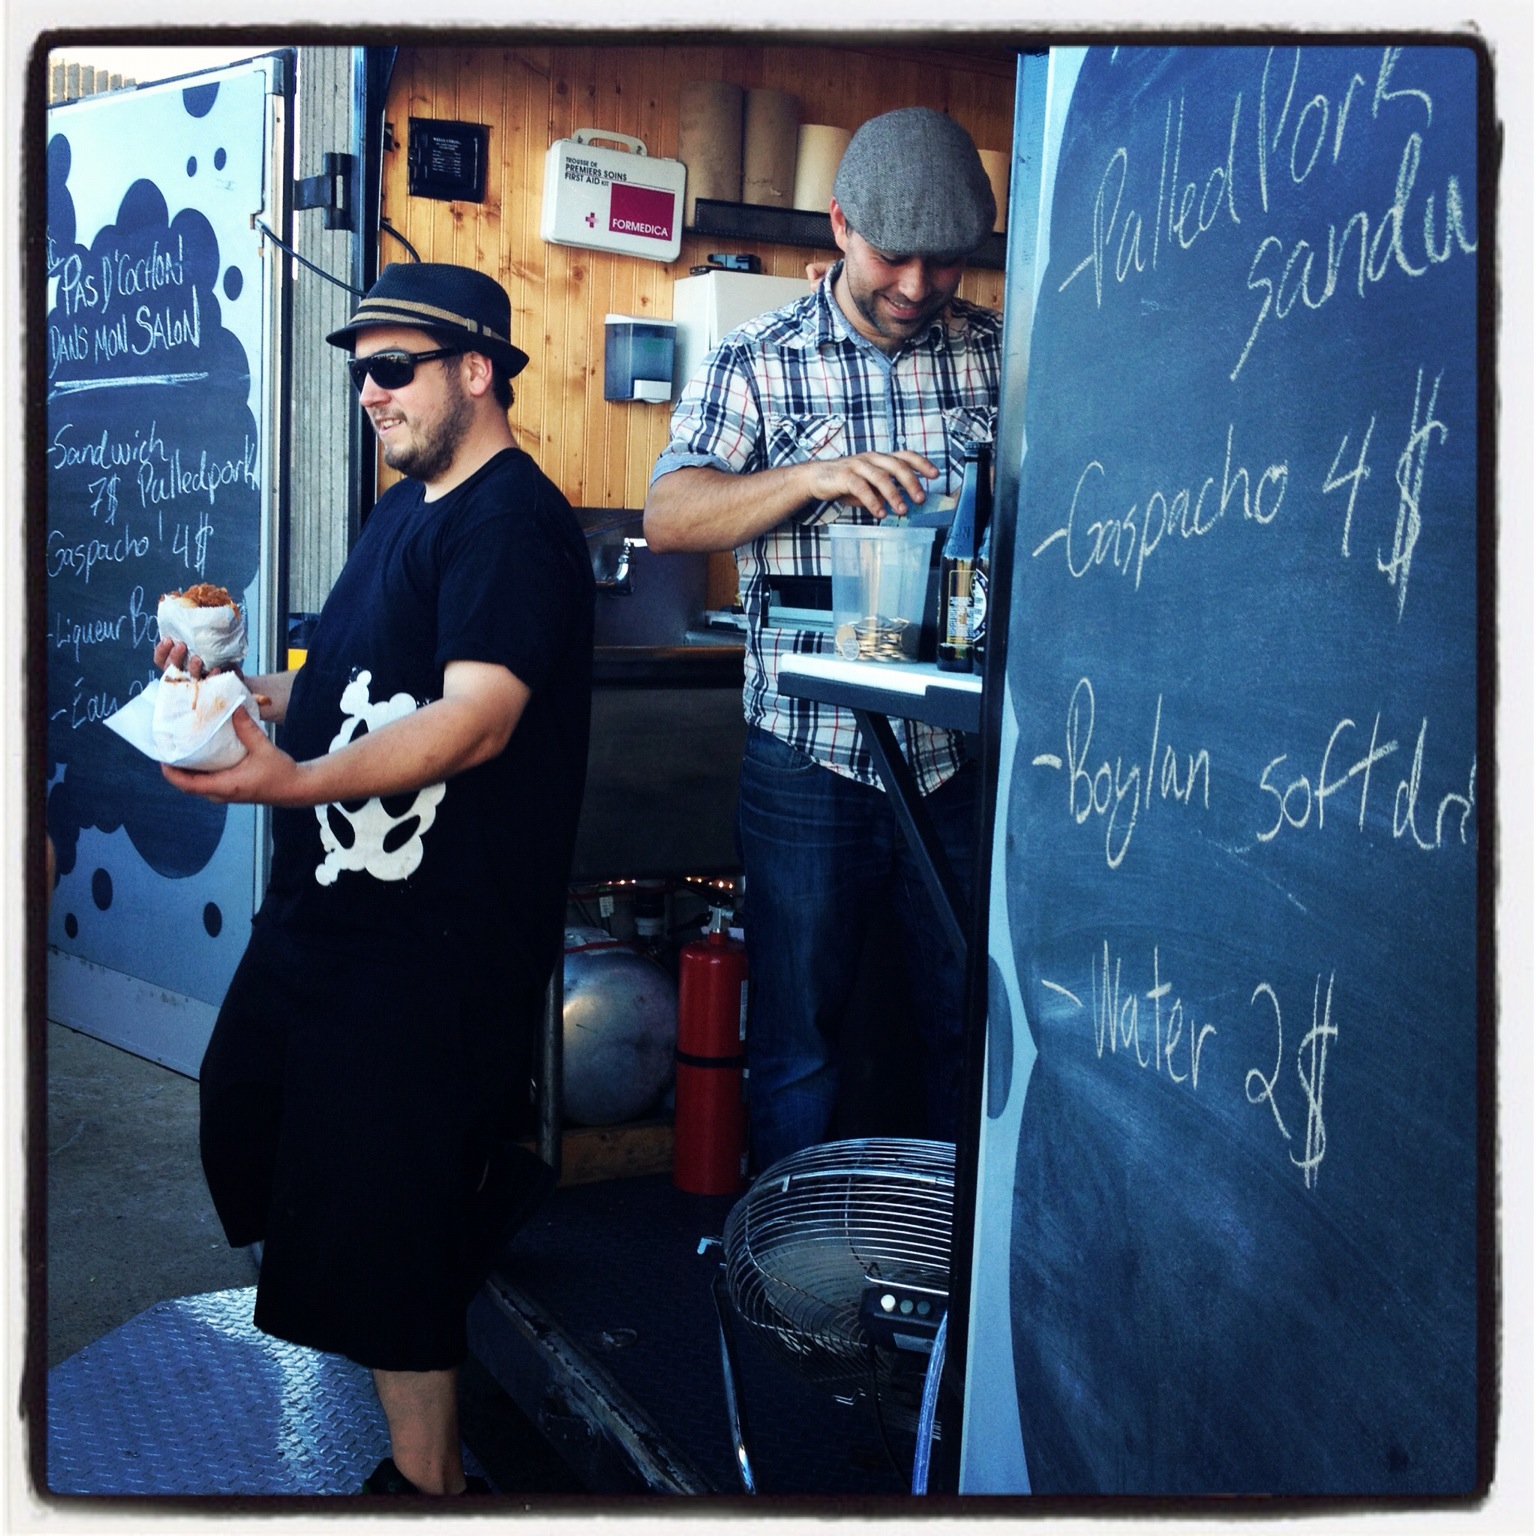 PAS D'COCHON
DANS MON SALON
-Sandwich
7$ Pulledpork
Gaspacho 4$
-Liqueur
-Eau
TROUSSE DE
PREMIERS SOINS
FIRST AID KIT
FORMEDICA
-Pulled Pork
sandw
-Gaspacho 4$
-Boylan soft dri
-Water 2$